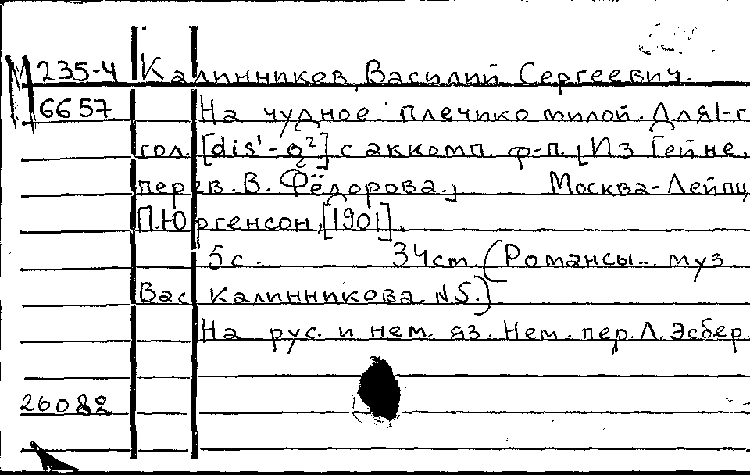 М 235-4 Калинников, Василий Сергеевич.
6657 На чудное плечико милой. Для 1-г
гол. [dis¹-g²] с аккомп. ф-п. [Из Гейне,
перев. В. Фёдорова.] Москва-Лейпц
П. Юргенсон, [1901].
5с. 34см. (Романсы.. муз
Вас Калинникова №5.)
На рус. и нем. яз. Нем. пер. Л. Эсбер
26082